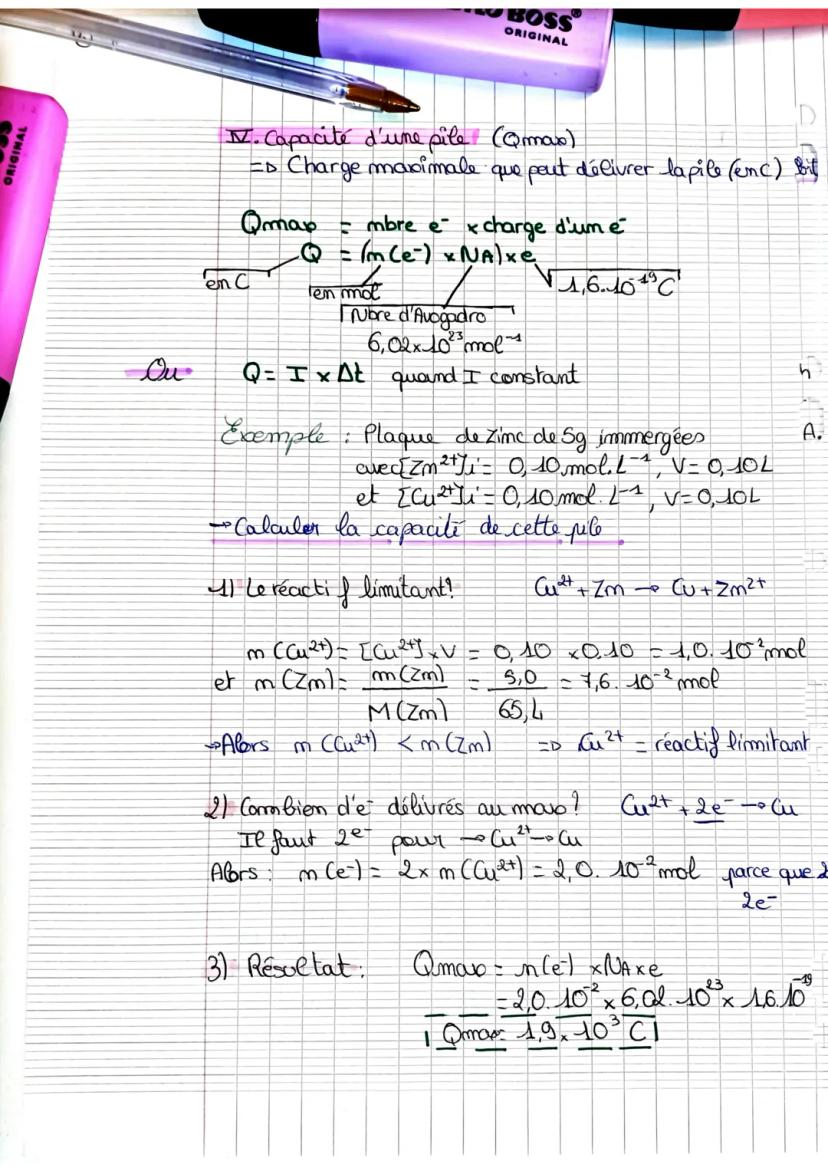 BOSS®
ORIGINAL
ORIGINAL
IV. Capacité d'une pile (Qmax)
=> Charge maximale que peut délivrer la pile (en C)
Qmax = nbre e⁻ x charge d'un e⁻
Q = (n(e⁻) x NA) x e
en C
en mol
1,6.10⁻¹⁹ C
Nbre d'Avogadro
6,02x10²³ mol⁻¹
Ou Q = I x Δt quand I constant
h
Exemple : Plaque de zinc de 5g immergées
A.
avec [Zn²⁺]i = 0,10 mol.L⁻¹, V = 0,10L
et [Cu²⁺]i = 0,10 mol.L⁻¹, V = 0,10L
→ Calculer la capacité de cette pile
1) Le réactif limitant? Cu²⁺ + Zn → Cu + Zn²⁺
n(Cu²⁺) = [Cu²⁺] x V = 0,10 x 0,10 = 1,0.10⁻² mol
et n(Zn) = m(Zn)/M(Zn) = 5,0/65,4 = 7,6.10⁻² mol
→ Alors n(Cu²⁺) < n(Zn) => Cu²⁺ = réactif limitant
2) Combien d'e⁻ délivrés au max? Cu²⁺ + 2e⁻ → Cu
Il faut 2e⁻ pour → Cu²⁺ → Cu
Alors : n(e⁻) = 2 x n(Cu²⁺) = 2,0.10⁻² mol parce que 2
2e⁻
3) Résultat : Qmax = n(e⁻) x NA x e
= 2,0.10⁻² x 6,02.10²³ x 1,6.10⁻¹⁹
Qmax = 1,9 x 10³ C